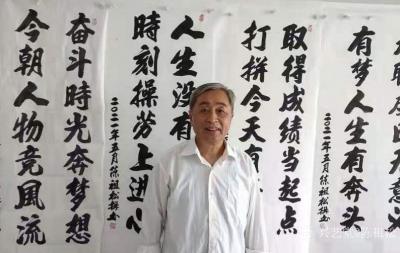 有梦人生有奔头
二〇二一年五月
祖松撰书
取得成绩当起点
打拼今天有
人生没有
時刻操劳上進心
二〇二一年五月
祖松撰书
奋斗時光奔梦想
今朝人物竞風流